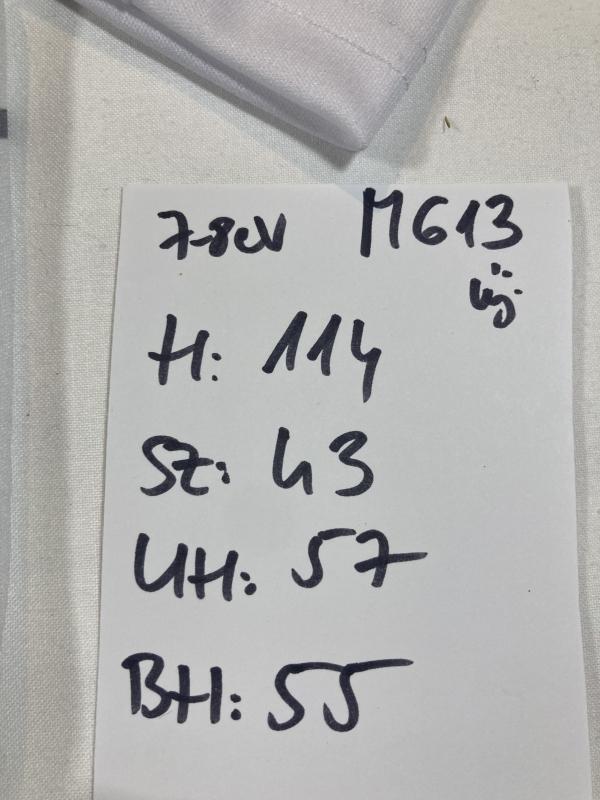 7-8év M613
új
H: 114
SZ: 43
UH: 57
BH: 55